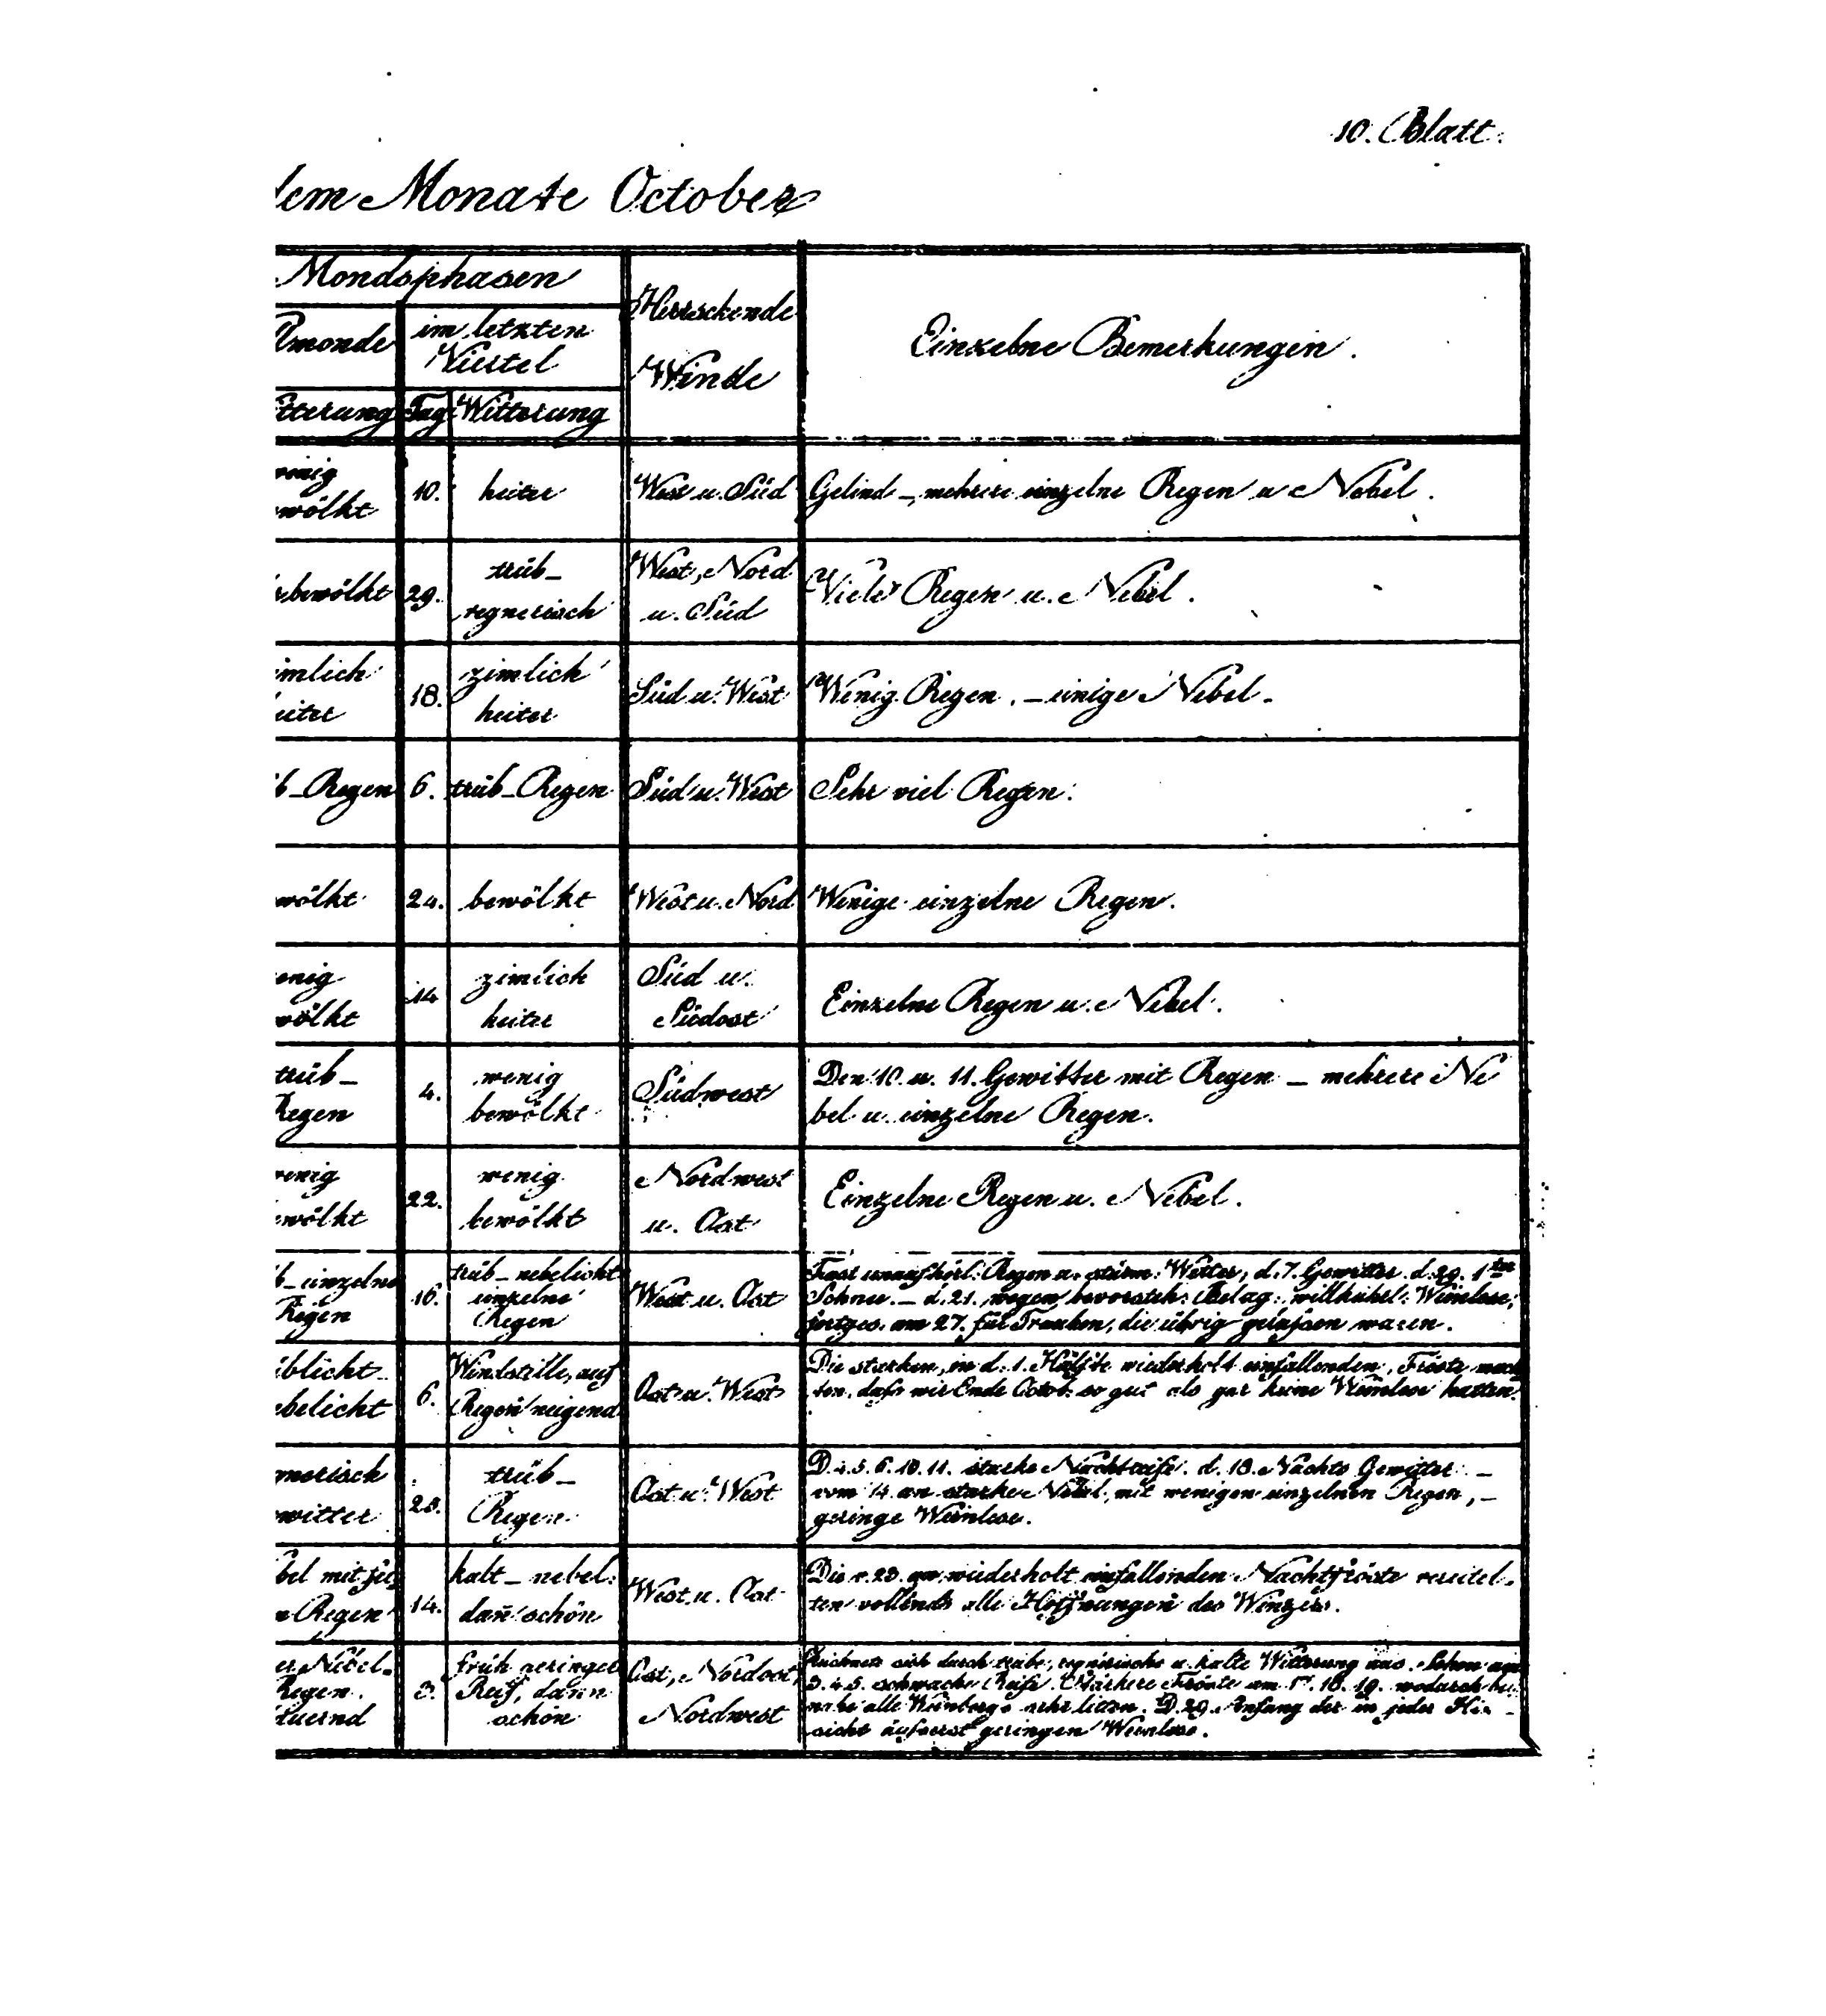 10. Blatt.
dem Monate October
Mondsphasen
Herrschende
Winde
Einzelne Bemerkungen.
llmonde
im letzten
Viertel
itterung Tag Witterung
wenig
ewölkt
10.
heiter
West u. Süd
Gelind – mehrere einzelne Regen u Nebel.
bewölkt
29.
trüb –
regnerisch
West, Nord
u. Süd
Viele Regen u. Nebel.
imlich
eiter
18.
zimlich
heiter
Süd u. West
Wenig Regen. – einige Nebel.
b – Regen
6.
trüb – Regen
Süd u. West
Sehr viel Regen.
wölkt
24.
bewölkt
West u. Nord
Wenige einzelne Regen.
enig
wölkt
14
zimlich
heiter
Süd u.
Südost
Einzelne Regen u. Nebel.
trüb –
Regen
4.
wenig
bewölkt
Südwest
Den 10. u. 11. Gewitter mit Regen – mehrere Ne
bel u. einzelne Regen.
wenig
ewölkt
22.
wenig
bewölkt
Nordwest
u. Ost
Einzelne Regen u. Nebel.
b – einzelne
Regen
16.
trüb – nebelicht
einzelne
Regen
West u. Ost
Fast unaufhörl: Regen u. stürm: Wetter, d. 7. Gewitter d. 20. 1ter
Schnee. – d. 21. wegen bevorsteh: Belag: willkühel: Weinlese;
fortges. am 27. für Trauben, die übrig gelaßen waren.
üblicht
ebelicht
6.
Windstille, auf
Regen neigend
Ost u. West
Die starken, in d. 1. Hälfte wiederholt einfallenden, Fröste mach
ten, daß wir Ende Octob. so gut als gar keine Weinlese hatten.
nerisch
witter
23.
trüb –
Regen
Ost u. West
D. 4. 5. 6. 10. 11. starke Nachtreife. d. 18. Nachts Gewitter –
vom 14. an starke Nebel, mit wenigen einzelnen Regen, –
geringe Weinlese.
bel mit
Regen
14.
kalt – nebel:
dan̄ schön
West u. Ost
Die v. 23. an wiederholt einfallenden Nachtfröste vereitel-
ten vollends alle Hoffnungen des Winzers.
er Nebel.
Regen.
auernd
3.
früh geringer
Reif, dann
schön
Ost, Nordost,
Nordwest
Zeichnete sich durch trübe, regnerische u. kalte Witterung aus. Schon am
3. 4. 5. schwache Reife. Stärkere Fröste am 17. 18. 19. wodurch bei
nahe alle Weinberge sehr litten. D. 29. Anfang der in jeder Hin-
sicht äußerst geringen Weinlese.